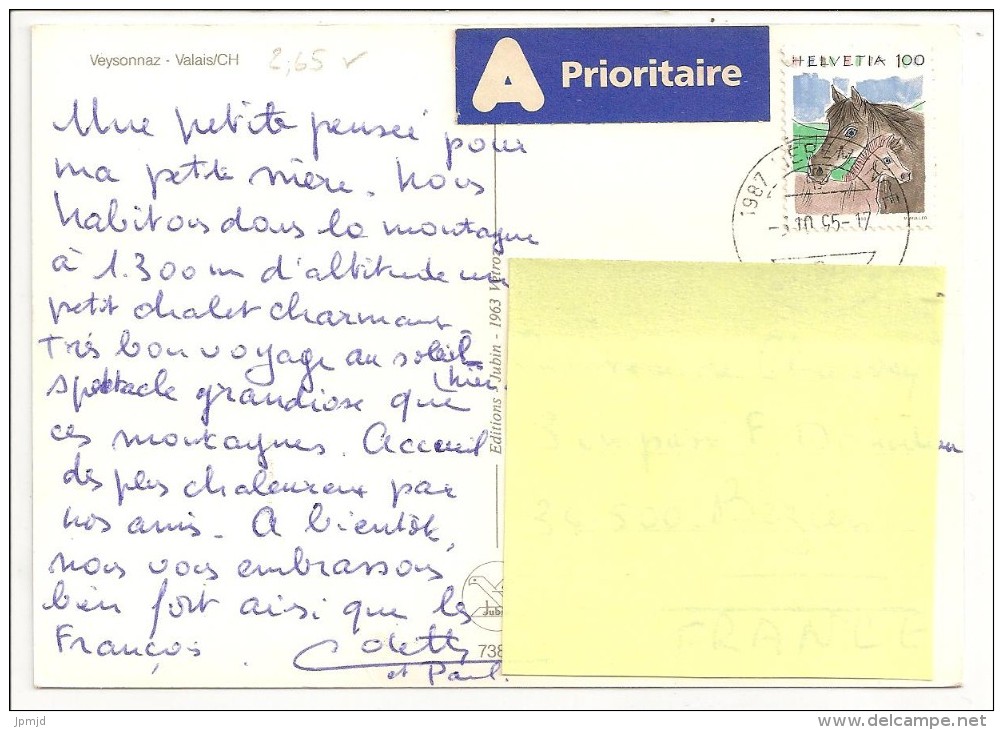 Veysonnaz - Valais/CH
2,65
A Prioritaire
HELVETIA 100
1987
Une petite pensée pour
ma petite mère. Nous
habitons dans la montagne
à 1.300 m d'altitude un
petit chalet charmant.
Très bon voyage au soleil
hier.
spectacle grandiose que
ces montagnes. Accueil
des plus chaleureux par
nos amis. A bientôt,
nous vous embrassons
bien fort ainsi que les
François
Colette
et Paul.
Editions Jubin - 1963 Vétroz
Jubin
738
FRANCE
jpmjd
www.delcampe.net